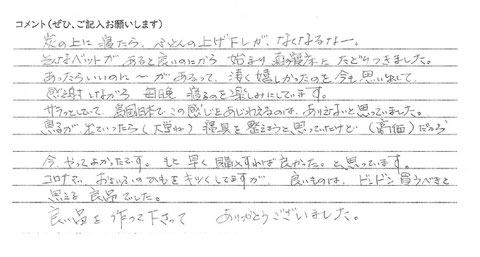 コメント(ぜひ、ご記入お願いします)
炭の上に寝たら、ふとんの上げ下しが、なくなるなー。
そんなベットが、あると良いのにから 始まり 眞の寝床に たどりつきました。
あったらいいのに〜があるって、凄く嬉しかったのを今も思い出して
感謝しながら 毎晩 寝るのを楽しみにしています。
サラッとしてて、島国日本でこの感じをあじわえるのは、ありえないと思っていました。
息子が 出ていったら(大学に) 寝具を整えようと思っていたけど(高価)だから
今、やってよかったです。もっと早く購入すれば良かった。と思っています。
コロナで、おさいふのひもをキツくしてますが、良いものは、ドンドン買うべきと
思える良品でした。
良い品を作って下さって ありがとうございました。